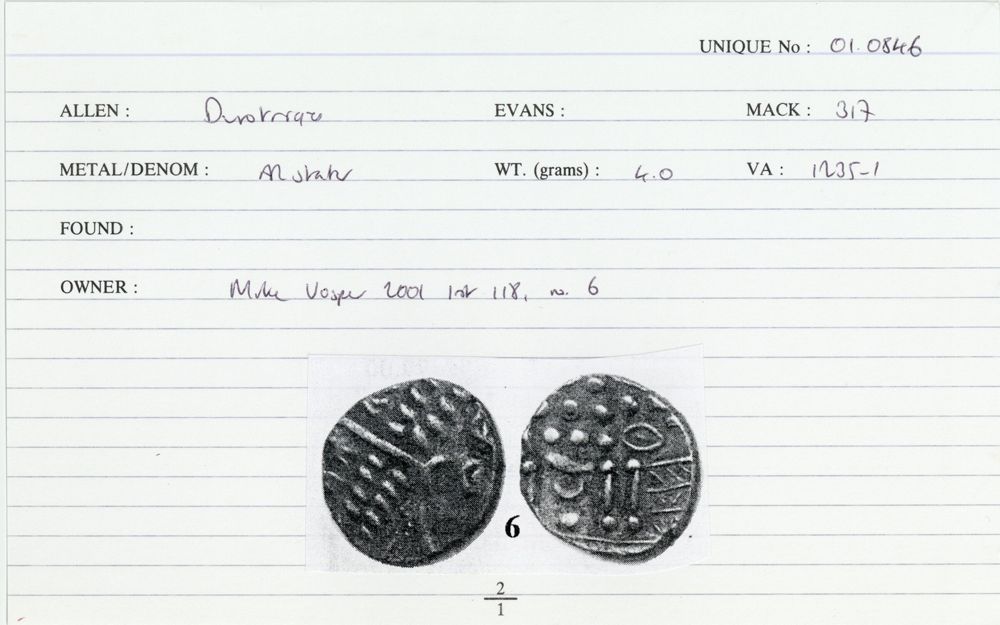 UNIQUE No : 01.0846
ALLEN : Durotriges EVANS : MACK : 317
METAL/DENOM : AR stater WT. (grams) : 4.0 VA : 1235-1
FOUND :
OWNER : Mike Vosper 2001 list 118, no. 6
6
2
1